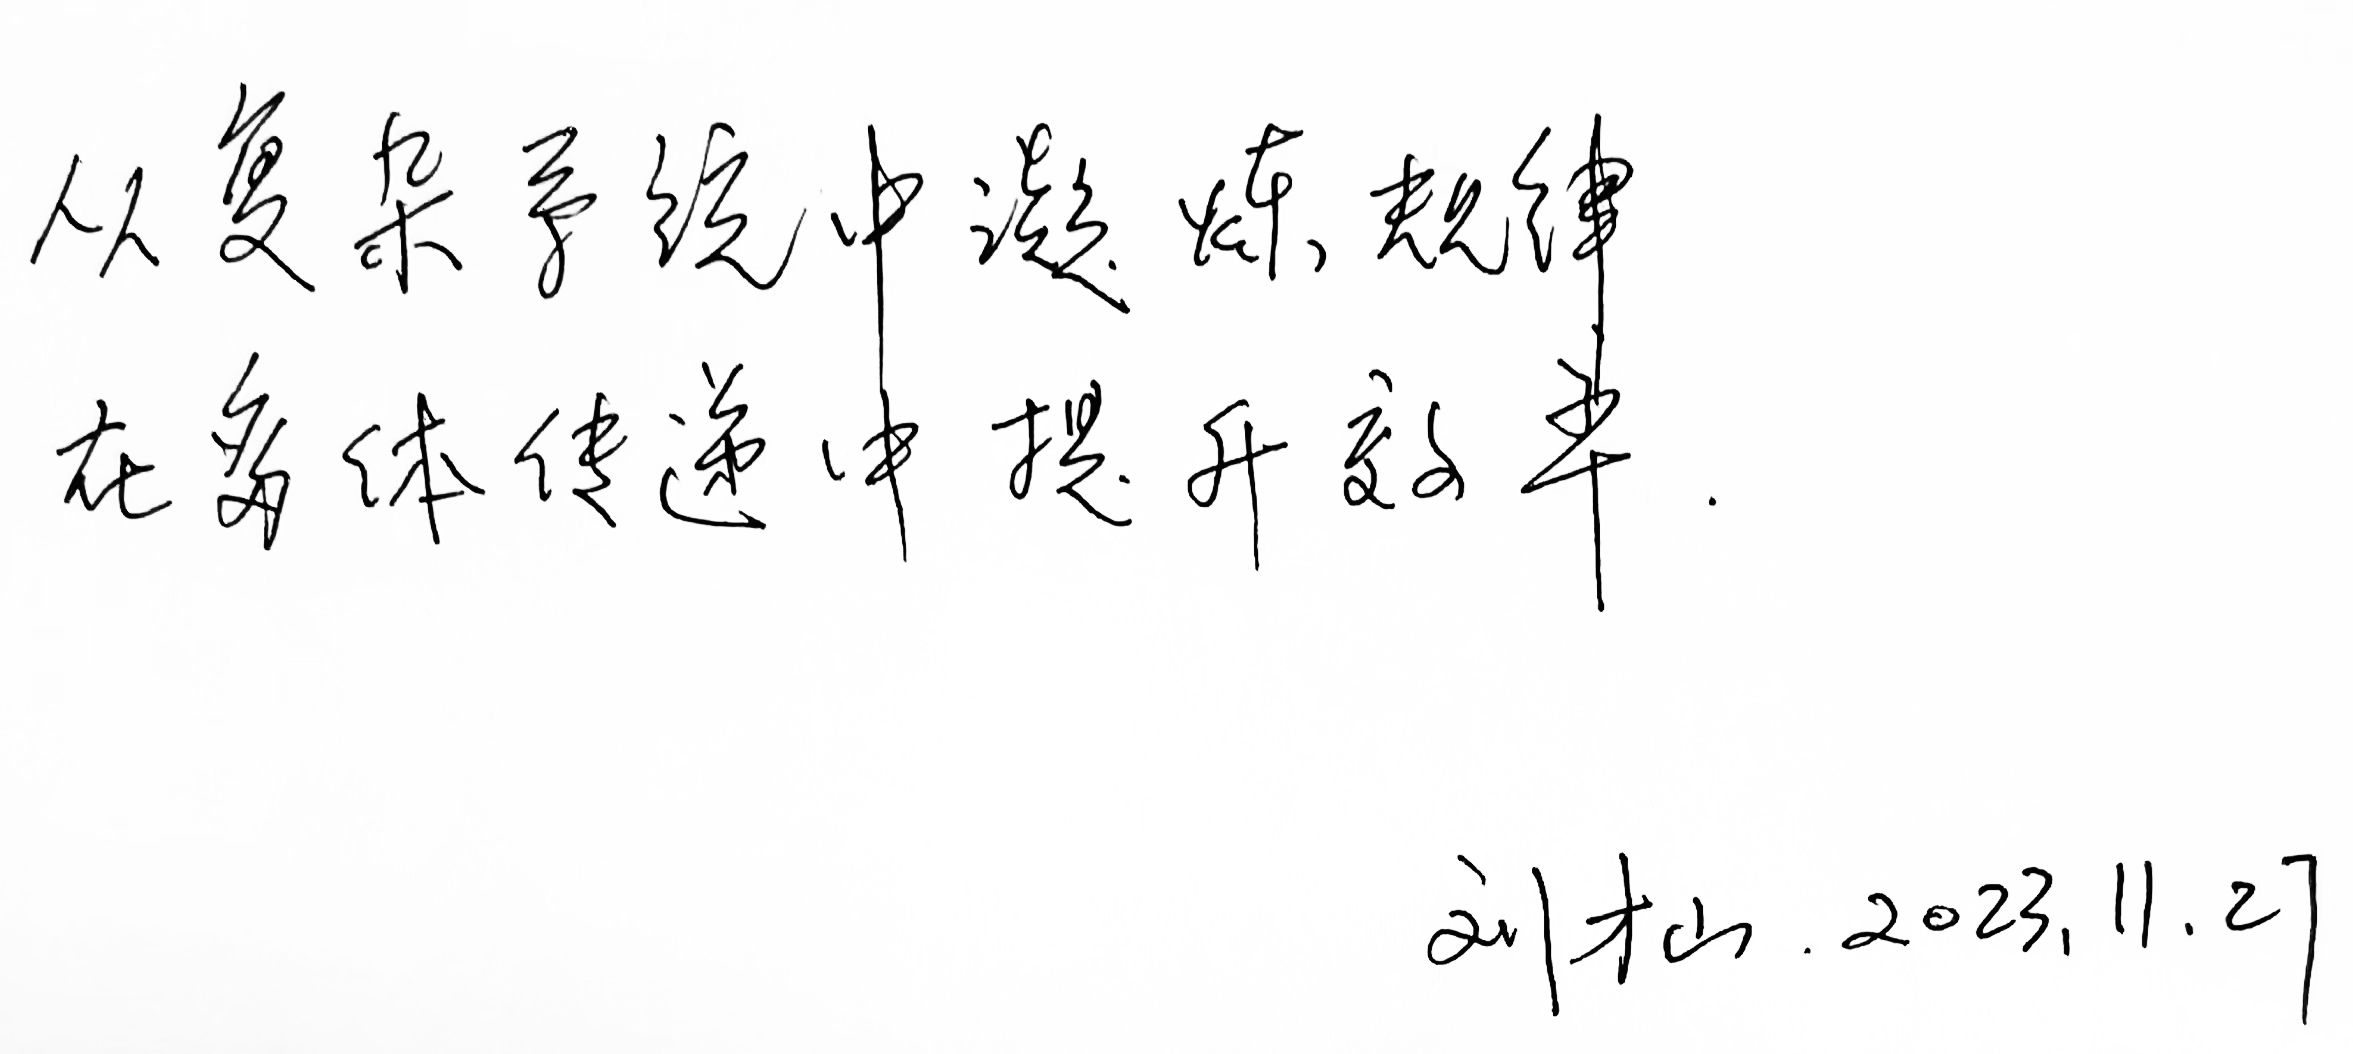 从复杂系统中凝炼规律
在多体传递中提升效率.
刘才山.2023.11.27